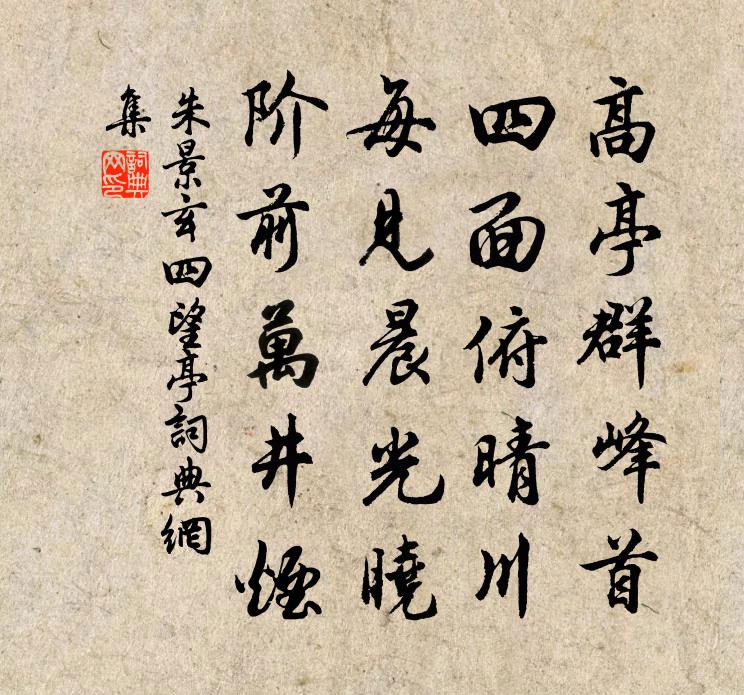 高亭群峰首
四面俯晴川
每見晨光曉
阶前萬井煙
朱景玄四望亭詞典網
集
詞典網印